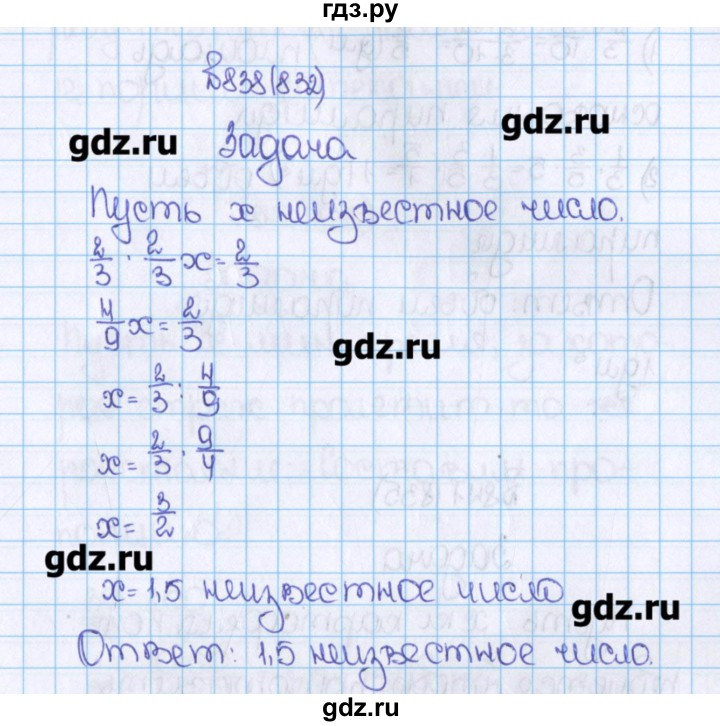 гдз.ру
В838(832)
gdz.ru
gdz.ru
Задача
Пусть x неизвестное число.
2/3 · 2/3 x = 2/3
4/9 x = 2/3
gdz.ru
x = 2/3 : 4/9
x = 2/3 · 9/4
x = 3/2
gdz.ru
x = 1,5 неизвестное число
gdz.ru
Ответ: 1,5 неизвестное число.
gdz.ru